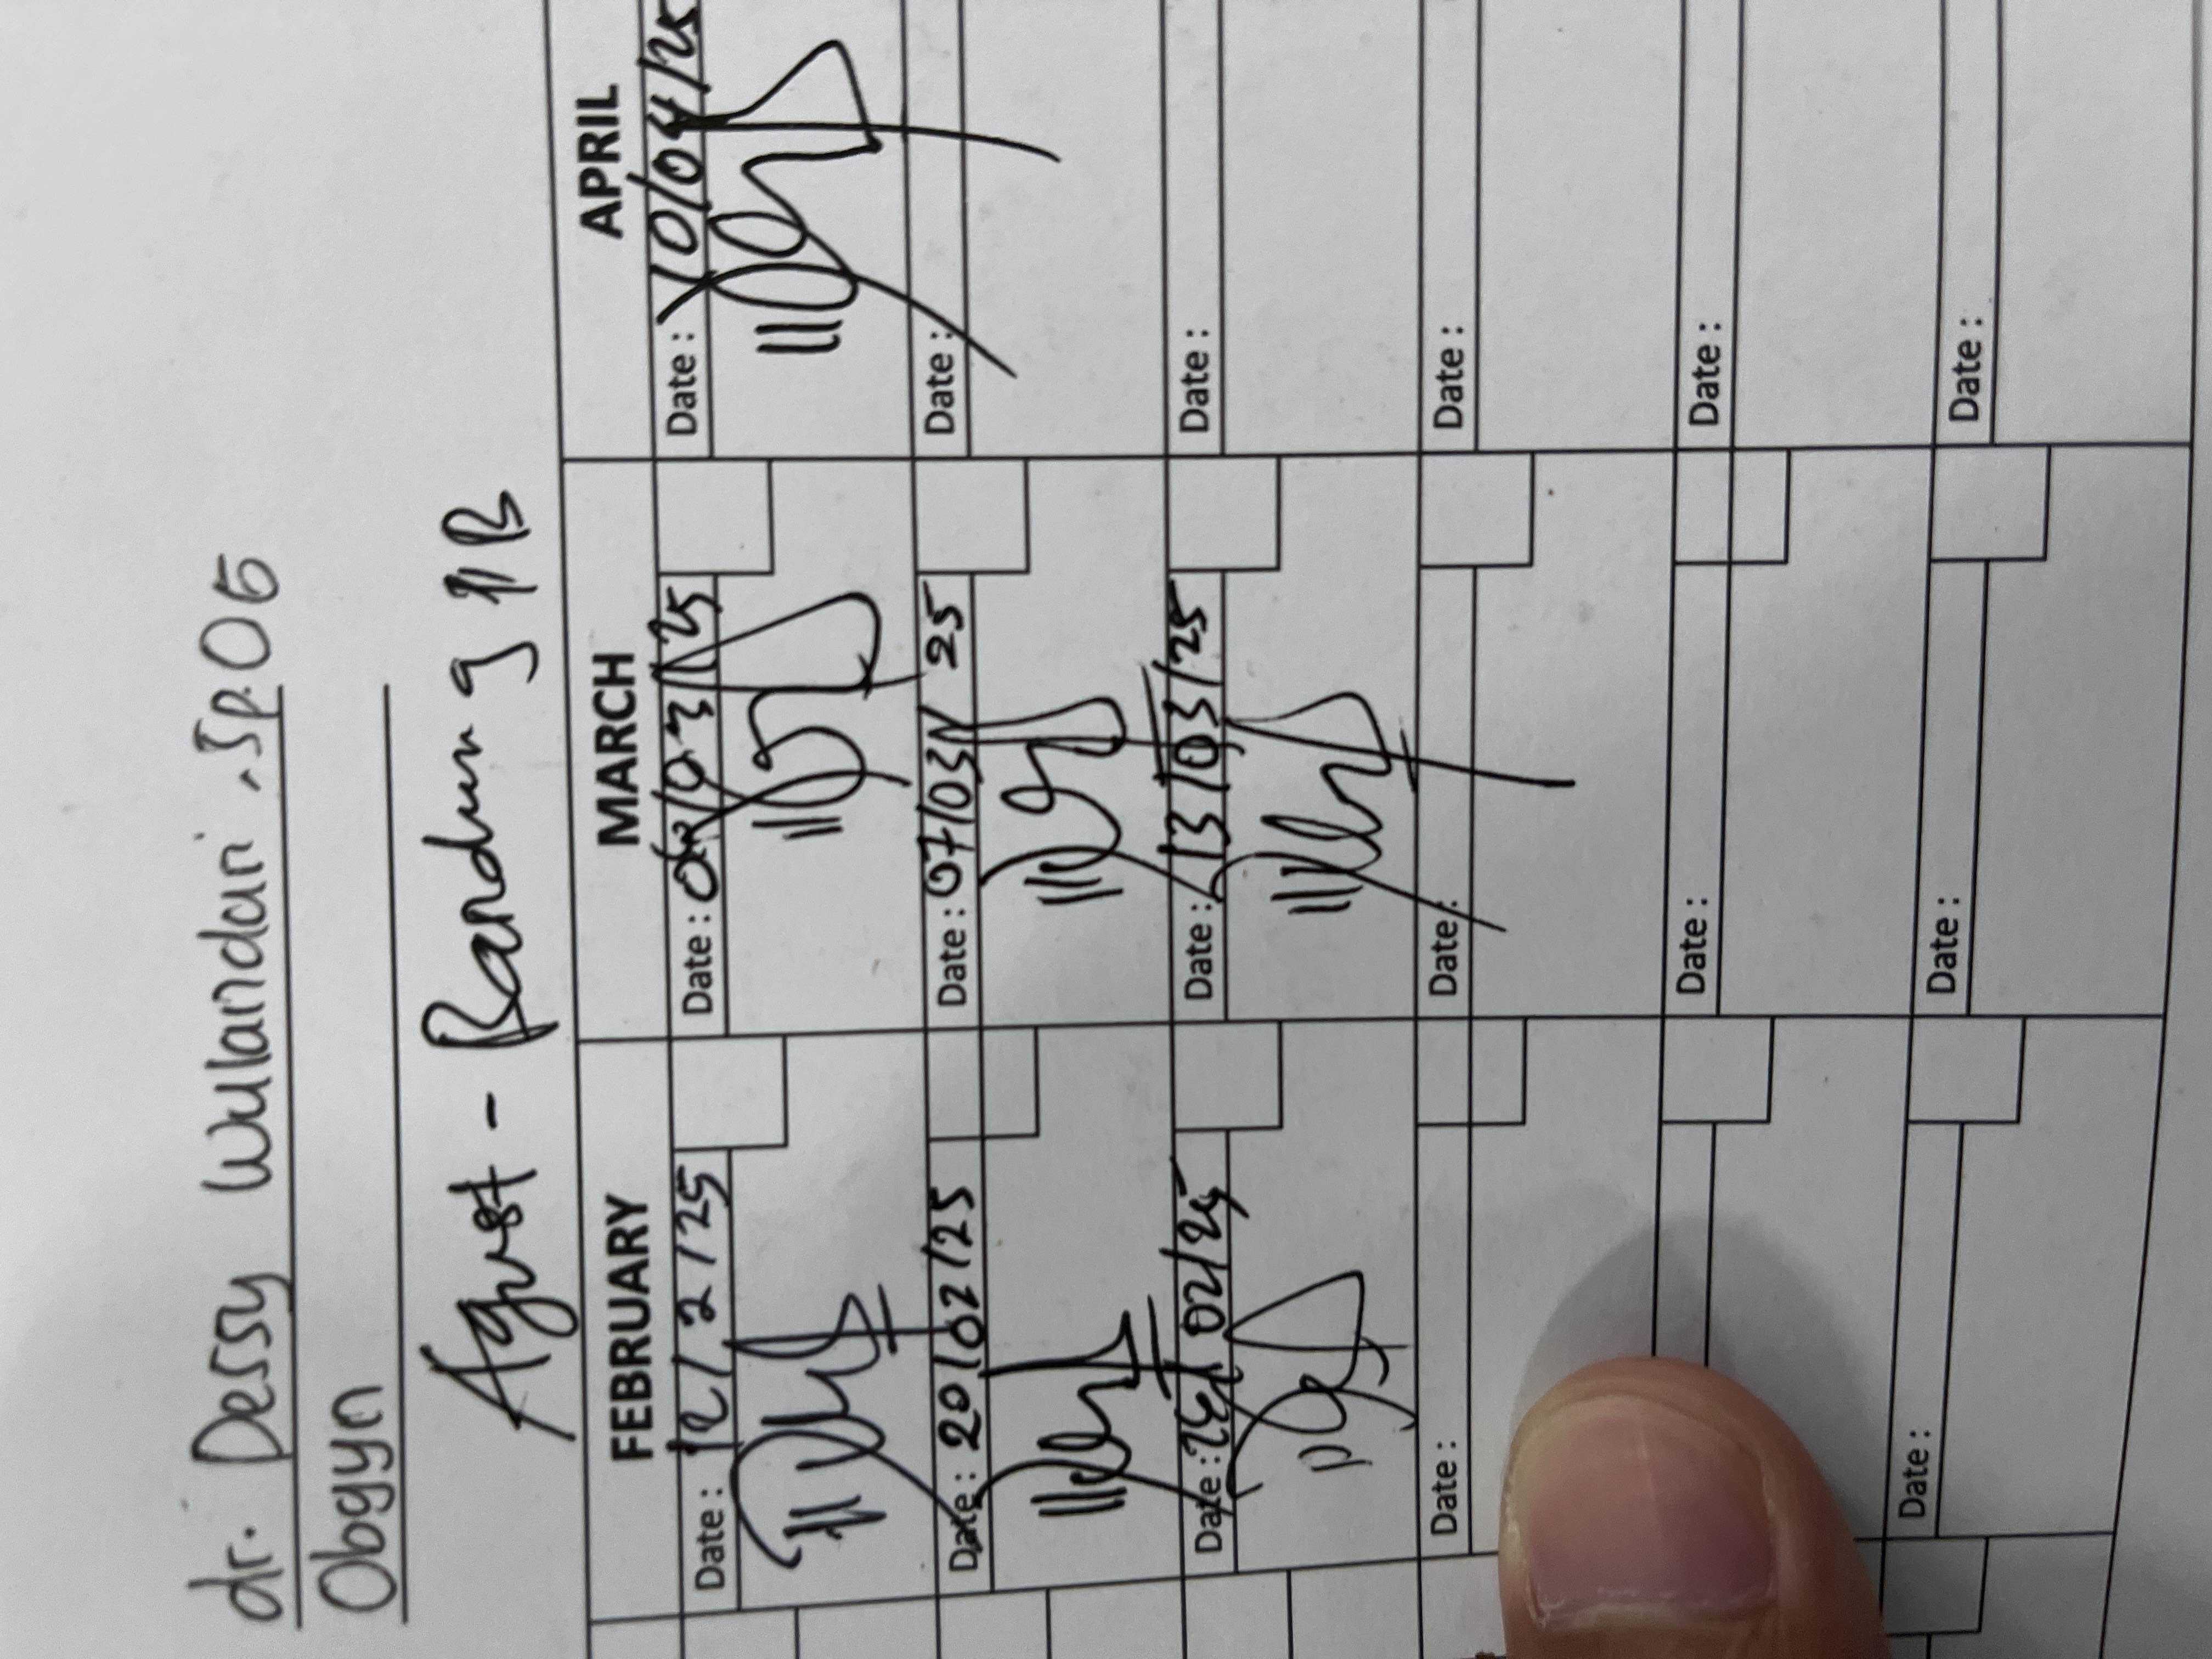 dr. Dessy Wulandari . Sp.OG
Obgyn
Agust - Bandung
FEBRUARY MARCH APRIL
Date: 12/2/25 Date: 03/03/25 Date: 10/04/25
Date: 20/02/25 Date: 07/03/25 Date:
Date: 02/25 Date: 13/03/25 Date:
Date: Date: Date:
Date: Date:
Date: Date: Date: